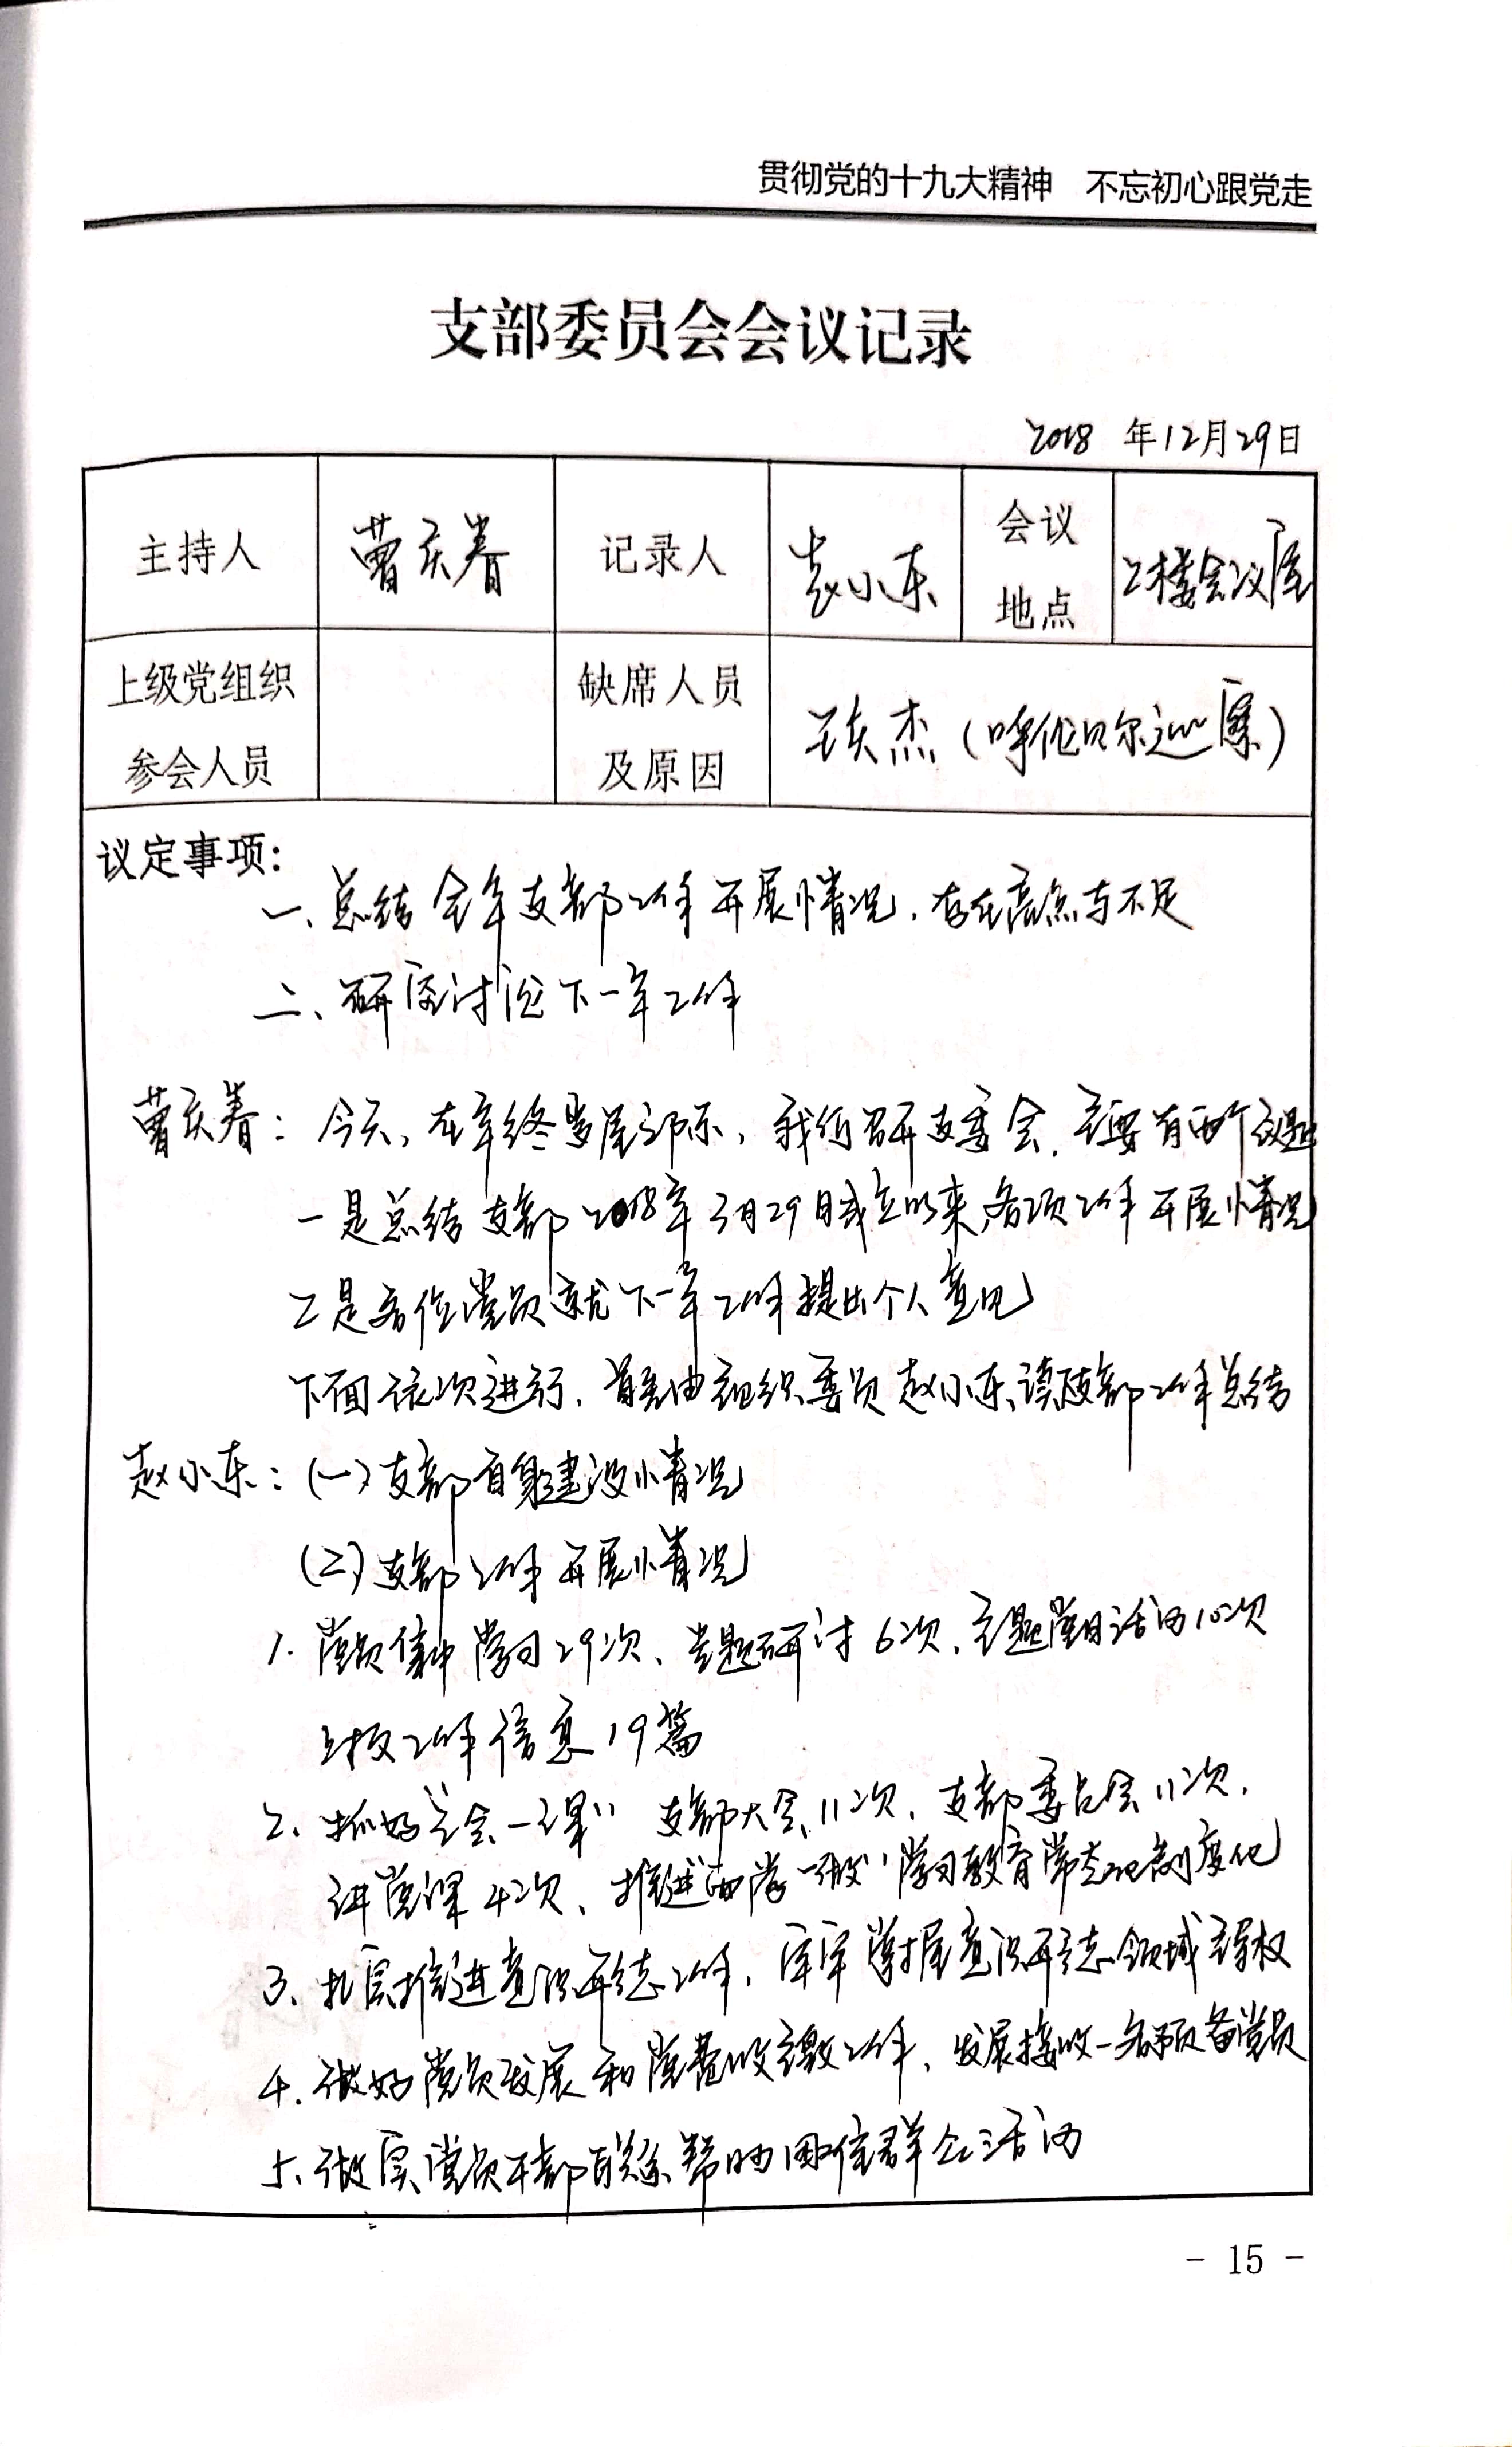 贯彻党的十九大精神　不忘初心跟党走
支部委员会会议记录
2018 年12月29日
主持人 曹庆春 记录人 赵小东 会议地点 二楼会议室
上级党组织参会人员 缺席人员及原因 王庆杰（呼伦贝尔巡察）
议定事项：
一、总结全年支部工作开展情况，存在亮点与不足
二、研究讨论下一年工作
曹庆春：今天，在年终岁尾之际，我们召开支委会，主要有两个议题
一是总结支部2018年3月29日成立以来各项工作开展情况
二是各位党员就下一年工作提出个人意见
下面依次进行，首先由组织委员赵小东读支部工作总结
赵小东：（一）支部自身建设情况
（二）支部工作开展情况
1. 党员集中学习29次、专题研讨6次、主题党日活动10次
上报工作信息19篇
2、抓好“三会一课”支部大会11次、支部委员会11次，
讲党课4次、推进“两学一做”学习教育常态化制度化
3、扎实推进意识形态工作，牢牢掌握意识形态领域主导权
4. 做好党员发展和党费收缴工作，发展接收一名预备党员
5. 做实党员干部联系帮助困难群众活动
- 15 -